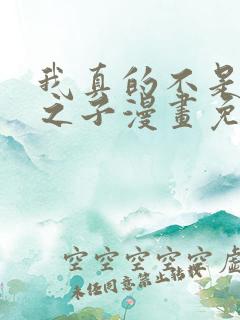 我真的不是
之子漫畫免
空空空空空 虛
未经同意禁止转载